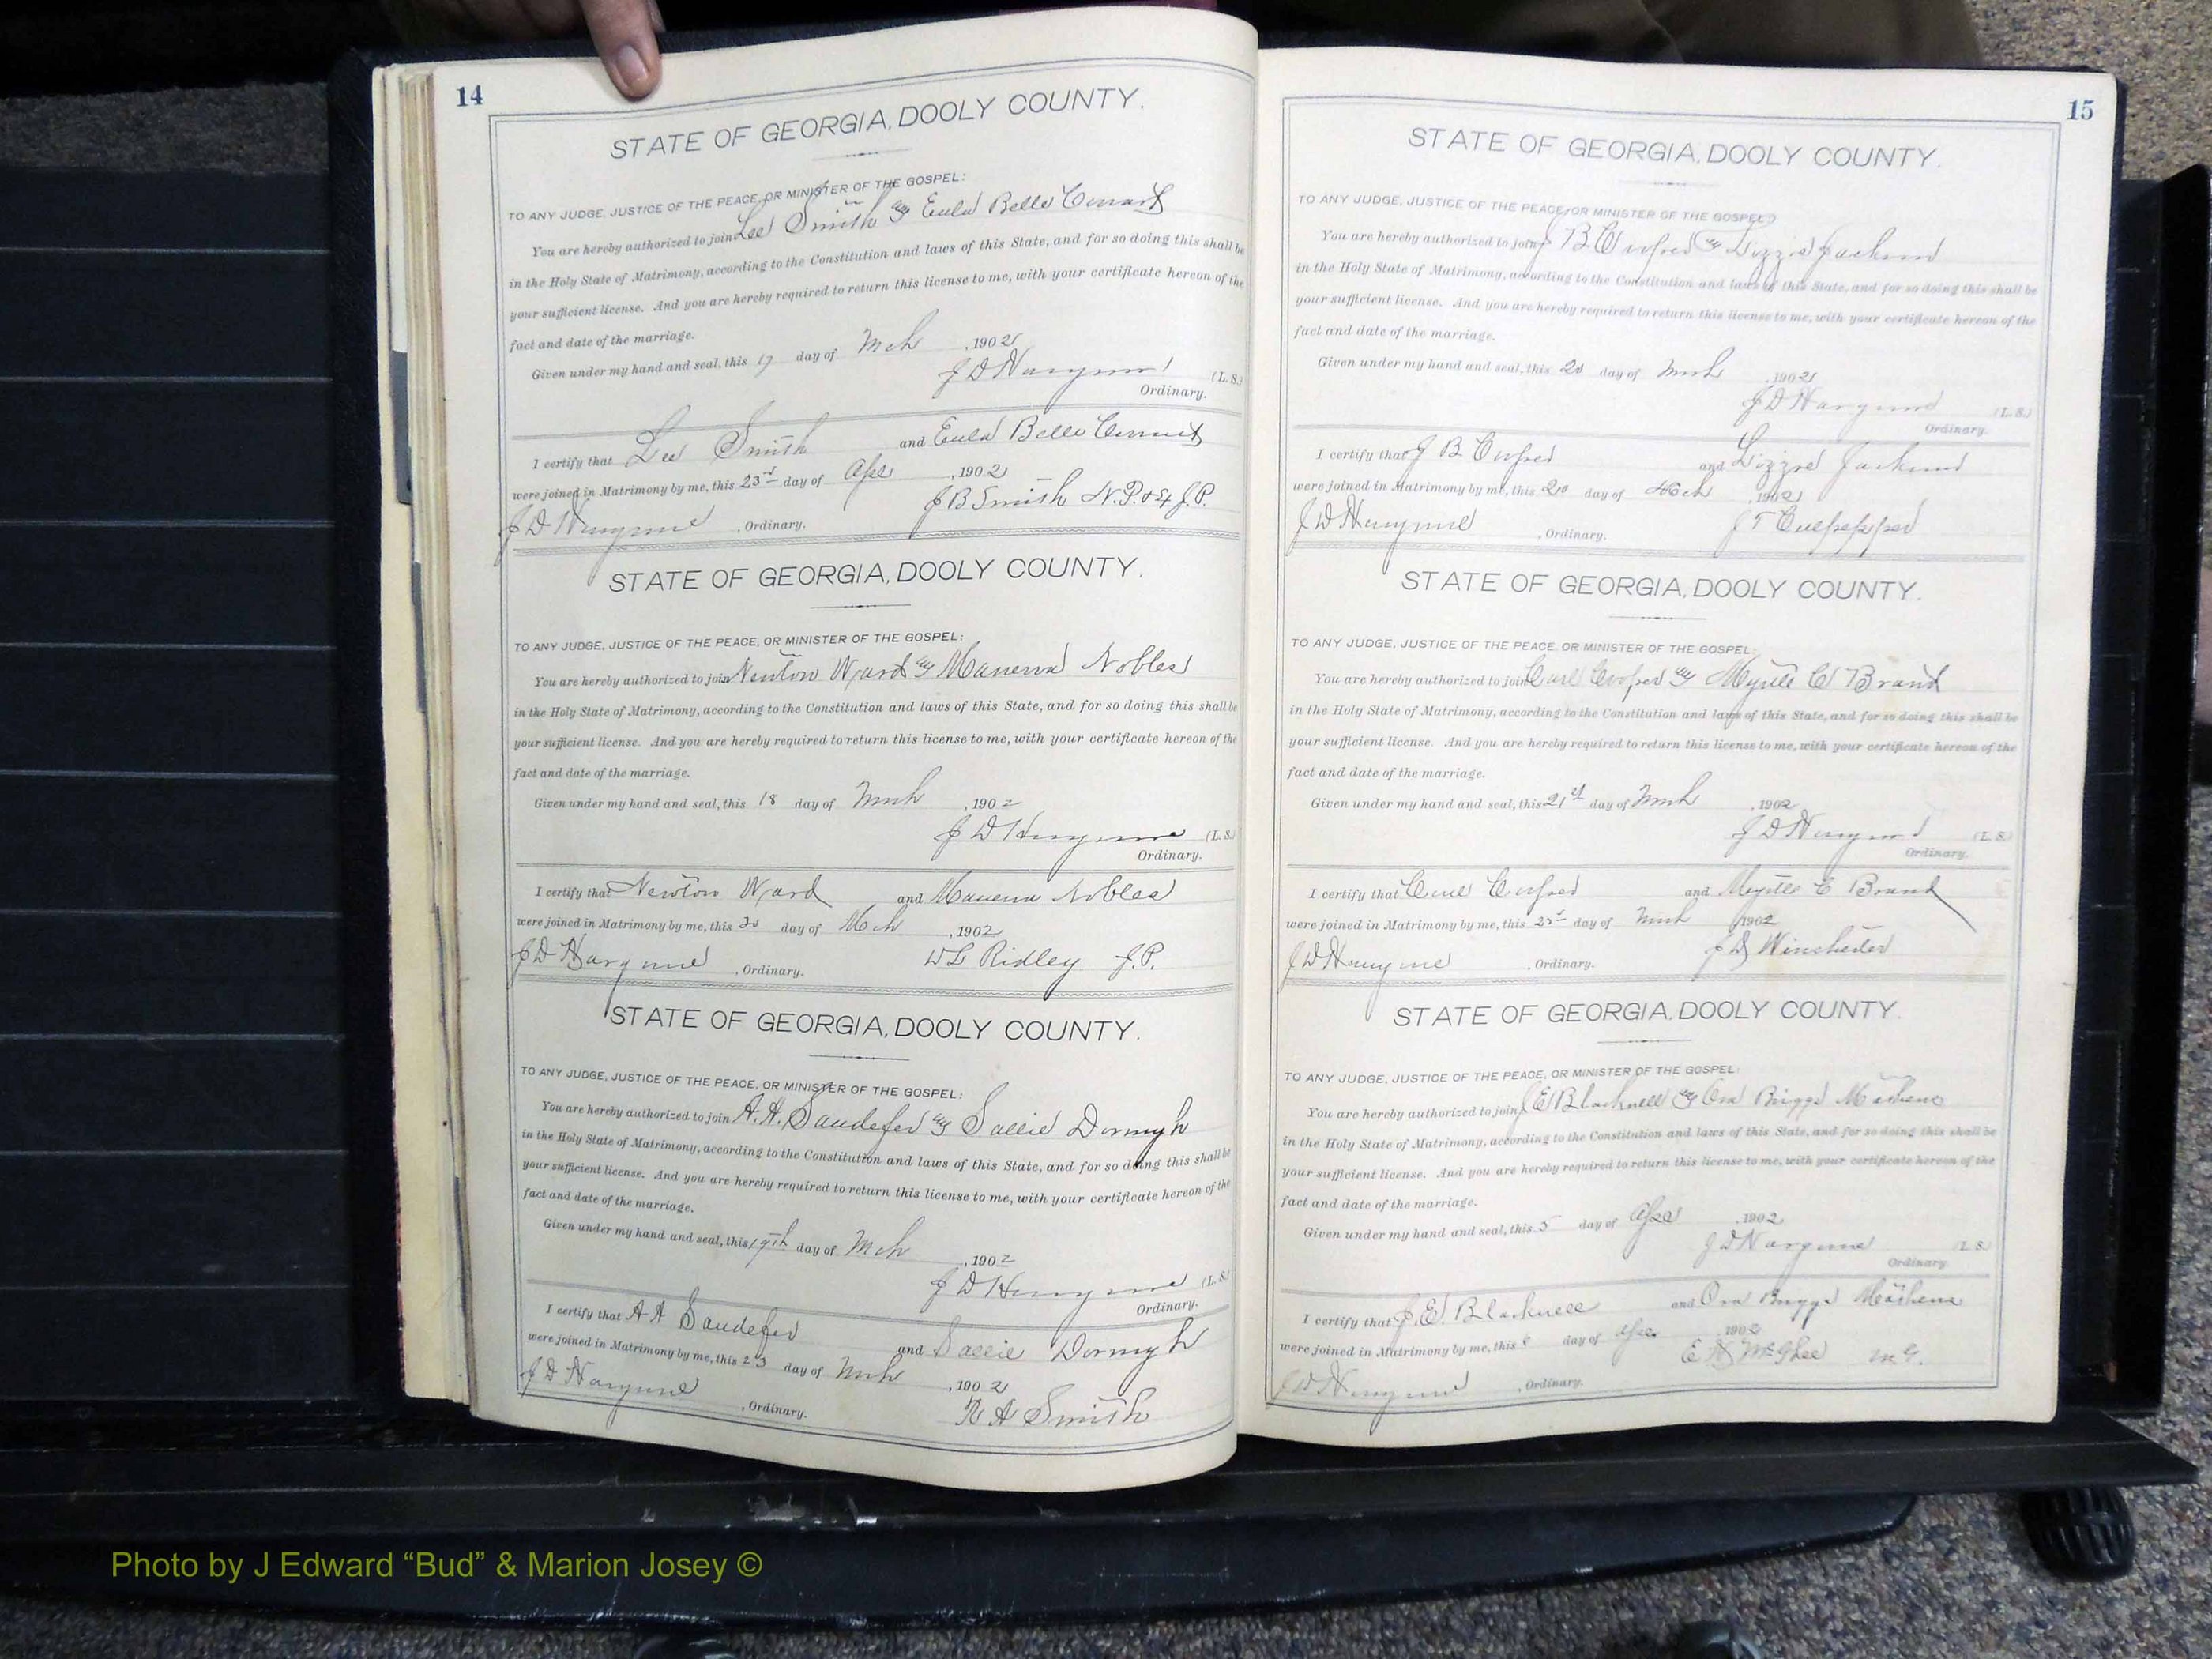 14
STATE OF GEORGIA, DOOLY COUNTY.
TO ANY JUDGE, JUSTICE OF THE PEACE, OR MINISTER OF THE GOSPEL:
You are hereby authorized to join Lee Smith & Eula Belle
in the Holy State of Matrimony, according to the Constitution and laws of this State, and for so doing this shall be
your sufficient license. And you are hereby required to return this license to me, with your certificate hereon of the
fact and date of the marriage.
Given under my hand and seal, this 17 day of Mch, 1902
J D Hargrove (L. S.)
Ordinary.
I certify that Lee Smith and Eula Belle
were joined in Matrimony by me, this 23rd day of Apl, 1902
J D Hargrove, Ordinary. J B Smith N.P. & Ex J.P.
STATE OF GEORGIA, DOOLY COUNTY.
TO ANY JUDGE, JUSTICE OF THE PEACE, OR MINISTER OF THE GOSPEL:
You are hereby authorized to join Newton Ward & Manerva Nobles
in the Holy State of Matrimony, according to the Constitution and laws of this State, and for so doing this shall be
your sufficient license. And you are hereby required to return this license to me, with your certificate hereon of the
fact and date of the marriage.
Given under my hand and seal, this 18 day of Mch, 1902
J D Hargrove (L. S.)
Ordinary.
I certify that Newton Ward and Manerva Nobles
were joined in Matrimony by me, this day of Mch, 1902
J D Hargrove, Ordinary. W L Ridley J.P.
STATE OF GEORGIA, DOOLY COUNTY.
TO ANY JUDGE, JUSTICE OF THE PEACE, OR MINISTER OF THE GOSPEL:
You are hereby authorized to join A. A. Sandefer & Sallie Dormyh
in the Holy State of Matrimony, according to the Constitution and laws of this State, and for so doing this shall be
your sufficient license. And you are hereby required to return this license to me, with your certificate hereon of the
fact and date of the marriage.
Given under my hand and seal, this 19th day of Mch, 1902
J D Hargrove (L. S.)
Ordinary.
I certify that A A Sandefer and Sallie Dormyh
were joined in Matrimony by me, this 23 day of Mch, 1902
J D Hargrove, Ordinary. R A Smith
15
STATE OF GEORGIA, DOOLY COUNTY.
TO ANY JUDGE, JUSTICE OF THE PEACE, OR MINISTER OF THE GOSPEL:
You are hereby authorized to join J B Cooper & Lizzie Jackson
in the Holy State of Matrimony, according to the Constitution and laws of this State, and for so doing this shall be
your sufficient license. And you are hereby required to return this license to me, with your certificate hereon of the
fact and date of the marriage.
Given under my hand and seal, this 20 day of Mch, 1902
J D Hargrove (L. S.)
Ordinary.
I certify that J B Cooper and Lizzie Jackson
were joined in Matrimony by me, this 20 day of Mch, 1902
J D Hargrove, Ordinary. J T Culpepper
STATE OF GEORGIA, DOOLY COUNTY.
TO ANY JUDGE, JUSTICE OF THE PEACE, OR MINISTER OF THE GOSPEL:
You are hereby authorized to join Carl Cooper & Myrtle C Brand
in the Holy State of Matrimony, according to the Constitution and laws of this State, and for so doing this shall be
your sufficient license. And you are hereby required to return this license to me, with your certificate hereon of the
fact and date of the marriage.
Given under my hand and seal, this 21st day of Mch, 1902
J D Hargrove (L. S.)
Ordinary.
I certify that Carl Cooper and Myrtle C Brand
were joined in Matrimony by me, this day of Mch, 1902
J D Hargrove, Ordinary. J D Winchester
STATE OF GEORGIA, DOOLY COUNTY.
TO ANY JUDGE, JUSTICE OF THE PEACE, OR MINISTER OF THE GOSPEL:
You are hereby authorized to join J E Blacknell & Ora Briggs Mathews
in the Holy State of Matrimony, according to the Constitution and laws of this State, and for so doing this shall be
your sufficient license. And you are hereby required to return this license to me, with your certificate hereon of the
fact and date of the marriage.
Given under my hand and seal, this 5 day of Apl, 1902
J D Hargrove (L. S.)
Ordinary.
I certify that J. E. Blacknell and Ora Briggs Mathews
were joined in Matrimony by me, this 6 day of Apl, 1902
J D Hargrove, Ordinary. E H McGhee M.G.
Photo by J Edward “Bud” & Marion Josey ©